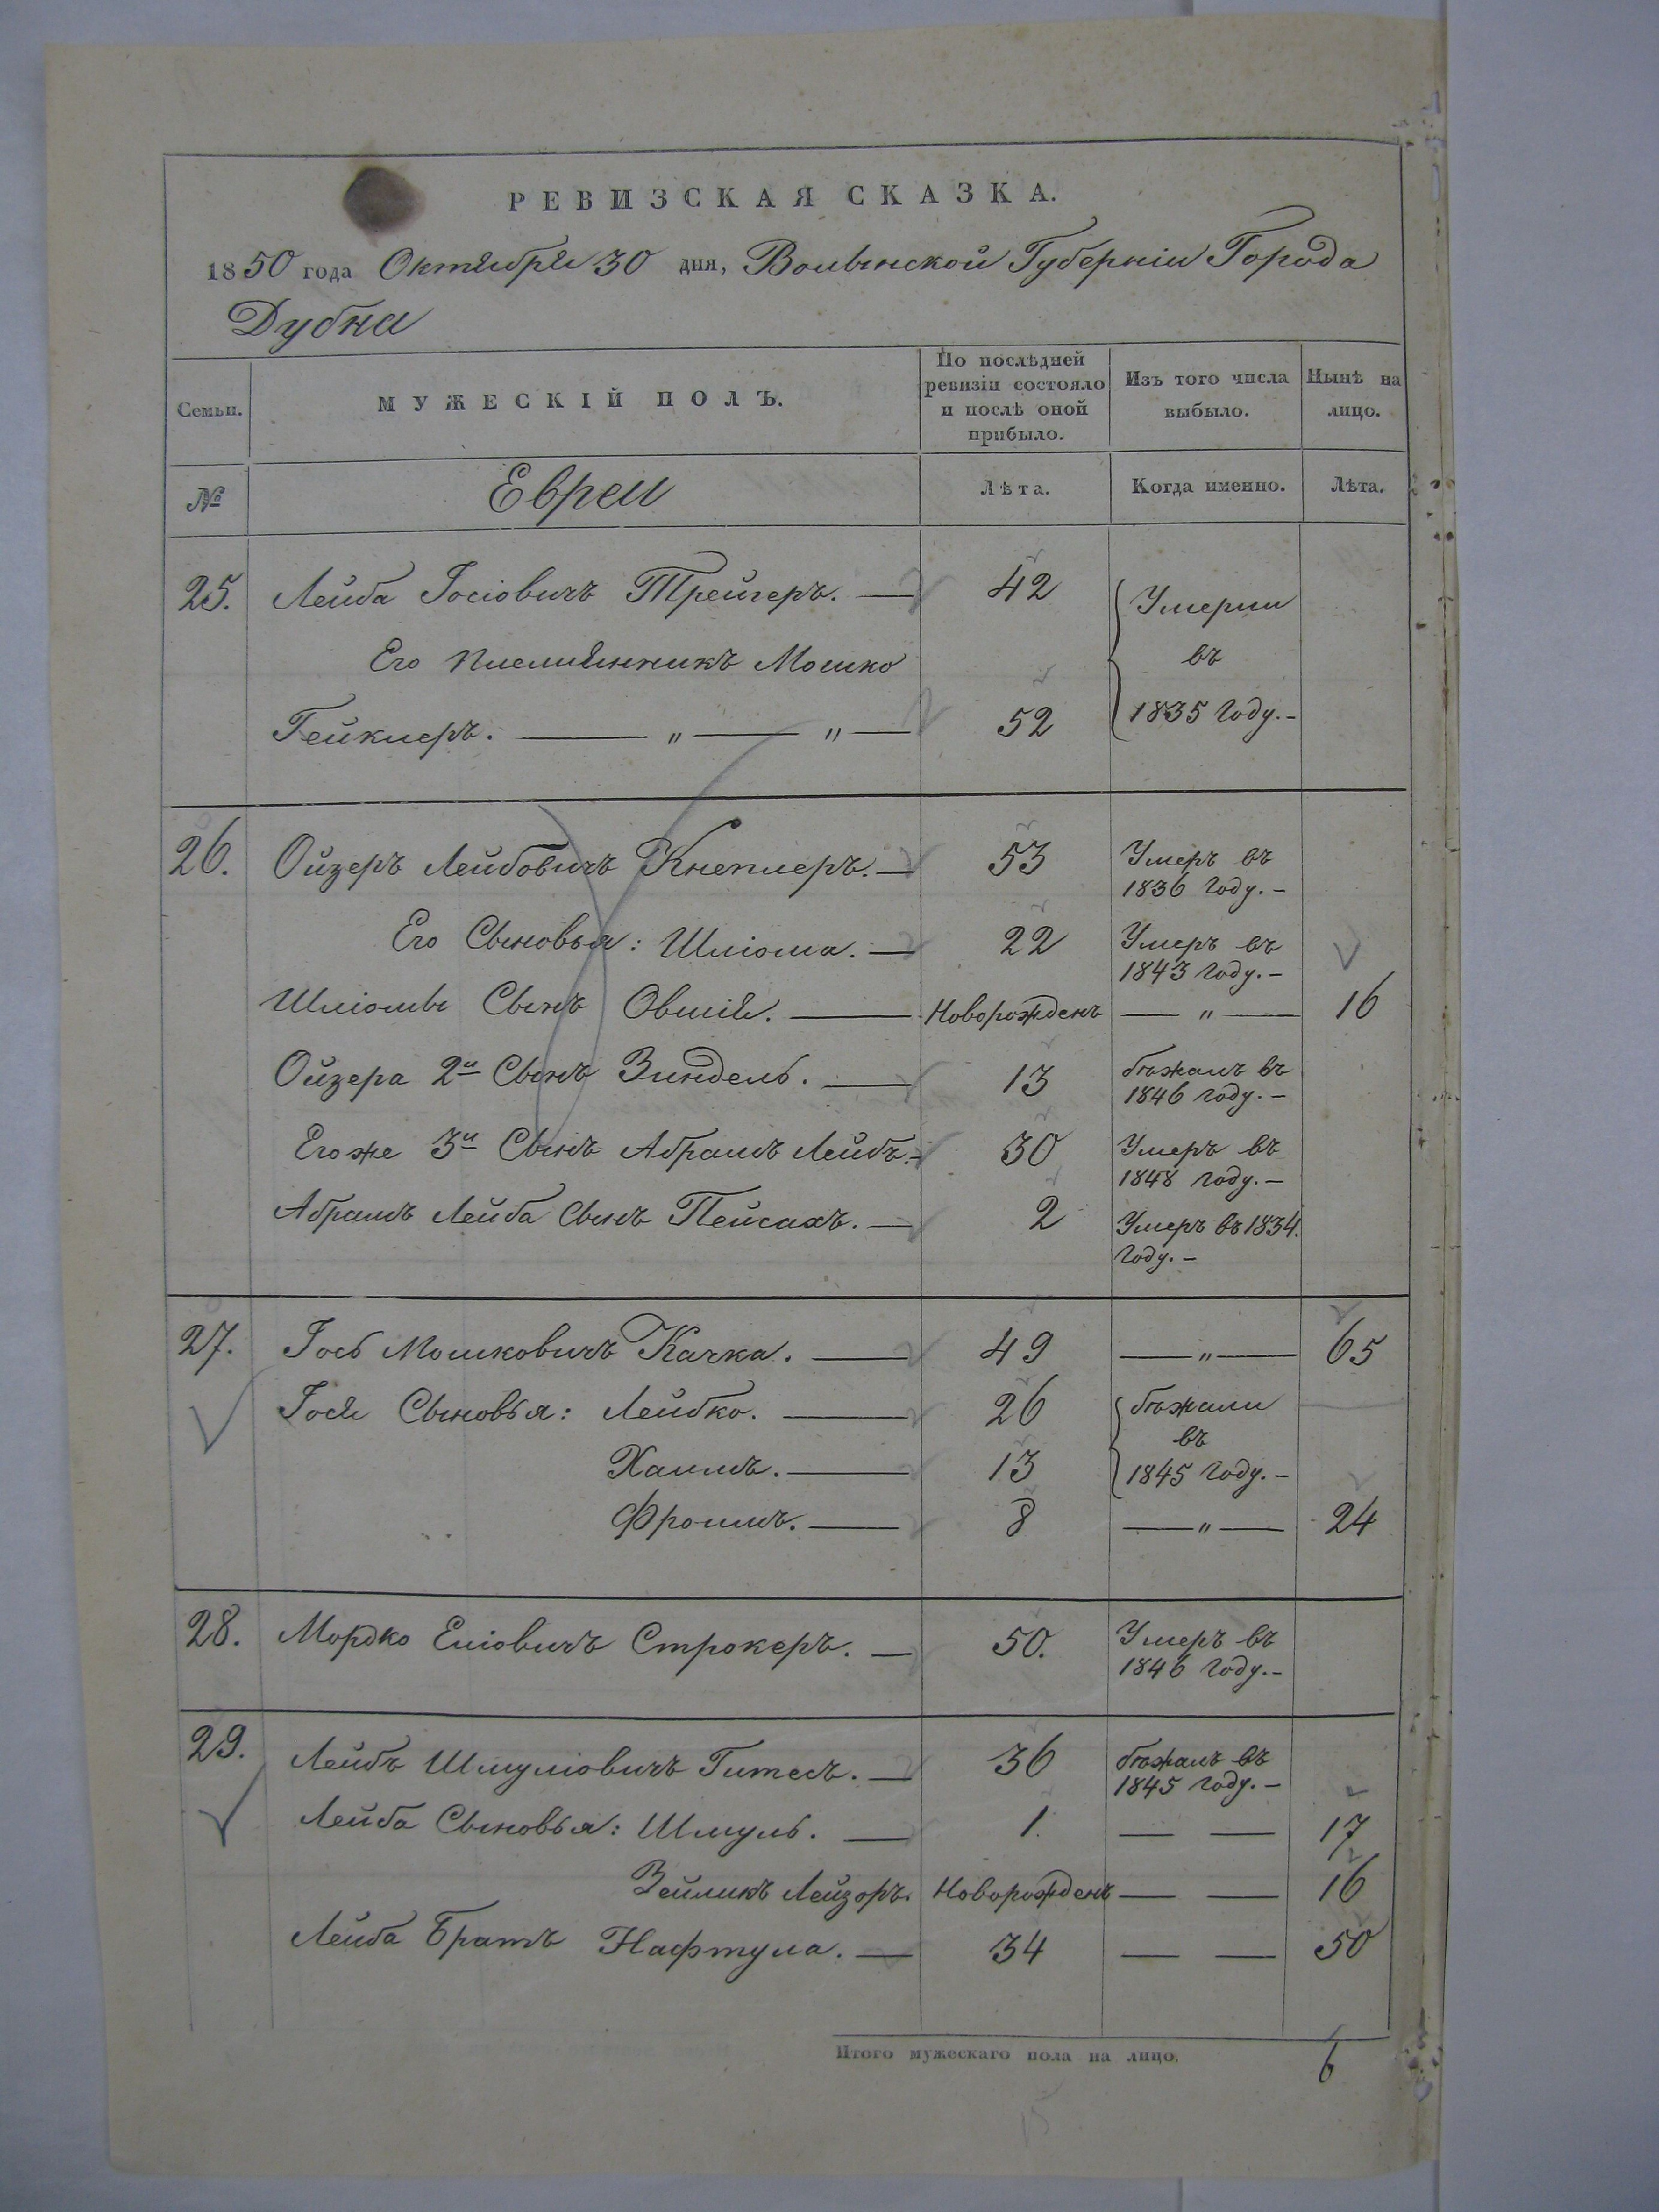 РЕВИЗСКАЯ СКАЗКА.
1850 года Октября 30 дня, Волынской Губерніи Города
Дубна
Семьи. МУЖЕСКІЙ ПОЛЪ. По послѣдней ревизіи состояло и послѣ оной прибыло. Изъ того числа выбыло. Нынѣ на лицо.
№ Евреи Лѣта. Когда именно. Лѣта.
25. Лейба Іосіовичъ Трейгеръ. — 42 Умерли
Его племянникъ Мошко въ
Гейклеръ. — „ — „ — 52 1835 году. –
26. Ойзеръ Лейбовичъ Кнеплеръ. — 53 Умеръ въ 1836 году. –
Его Сыновья: Шліома. — 22 Умеръ въ 1843 году. –
Шліомы Сынъ Овшія. — Новорожденъ — „ — 16
Ойзера 2й Сынъ Зиндель. — 13 бѣжалъ въ 1846 году. –
Егоже 3й Сынъ Абрамъ Лейбъ. – 30 Умеръ въ 1848 году. –
Абрамъ Лейба Сынъ Пейсахъ. — 2 Умеръ въ 1834. году. –
27. Іось Мошковичъ Качка. — 49 — „ — 65
Іося Сыновья: Лейбко. — 26 бѣжали
въ
Хаимъ. — 13 1845 году. –
Фроимъ. — 8 — „ — 24
28. Мордко Еліовичъ Строкеръ. — 50. Умеръ въ 1846 году. –
29. Лейбъ Шмуліовичъ Гитесъ. — 36 бѣжалъ въ 1845 году. –
Лейба Сыновья: Шмуль. — 1. — — 17
Зейликъ Лейзоръ. Новорожденъ — — 16
Лейба Братъ Нафтула. — 34 — — 50
Итого мужескаго пола на лицо. 6
15